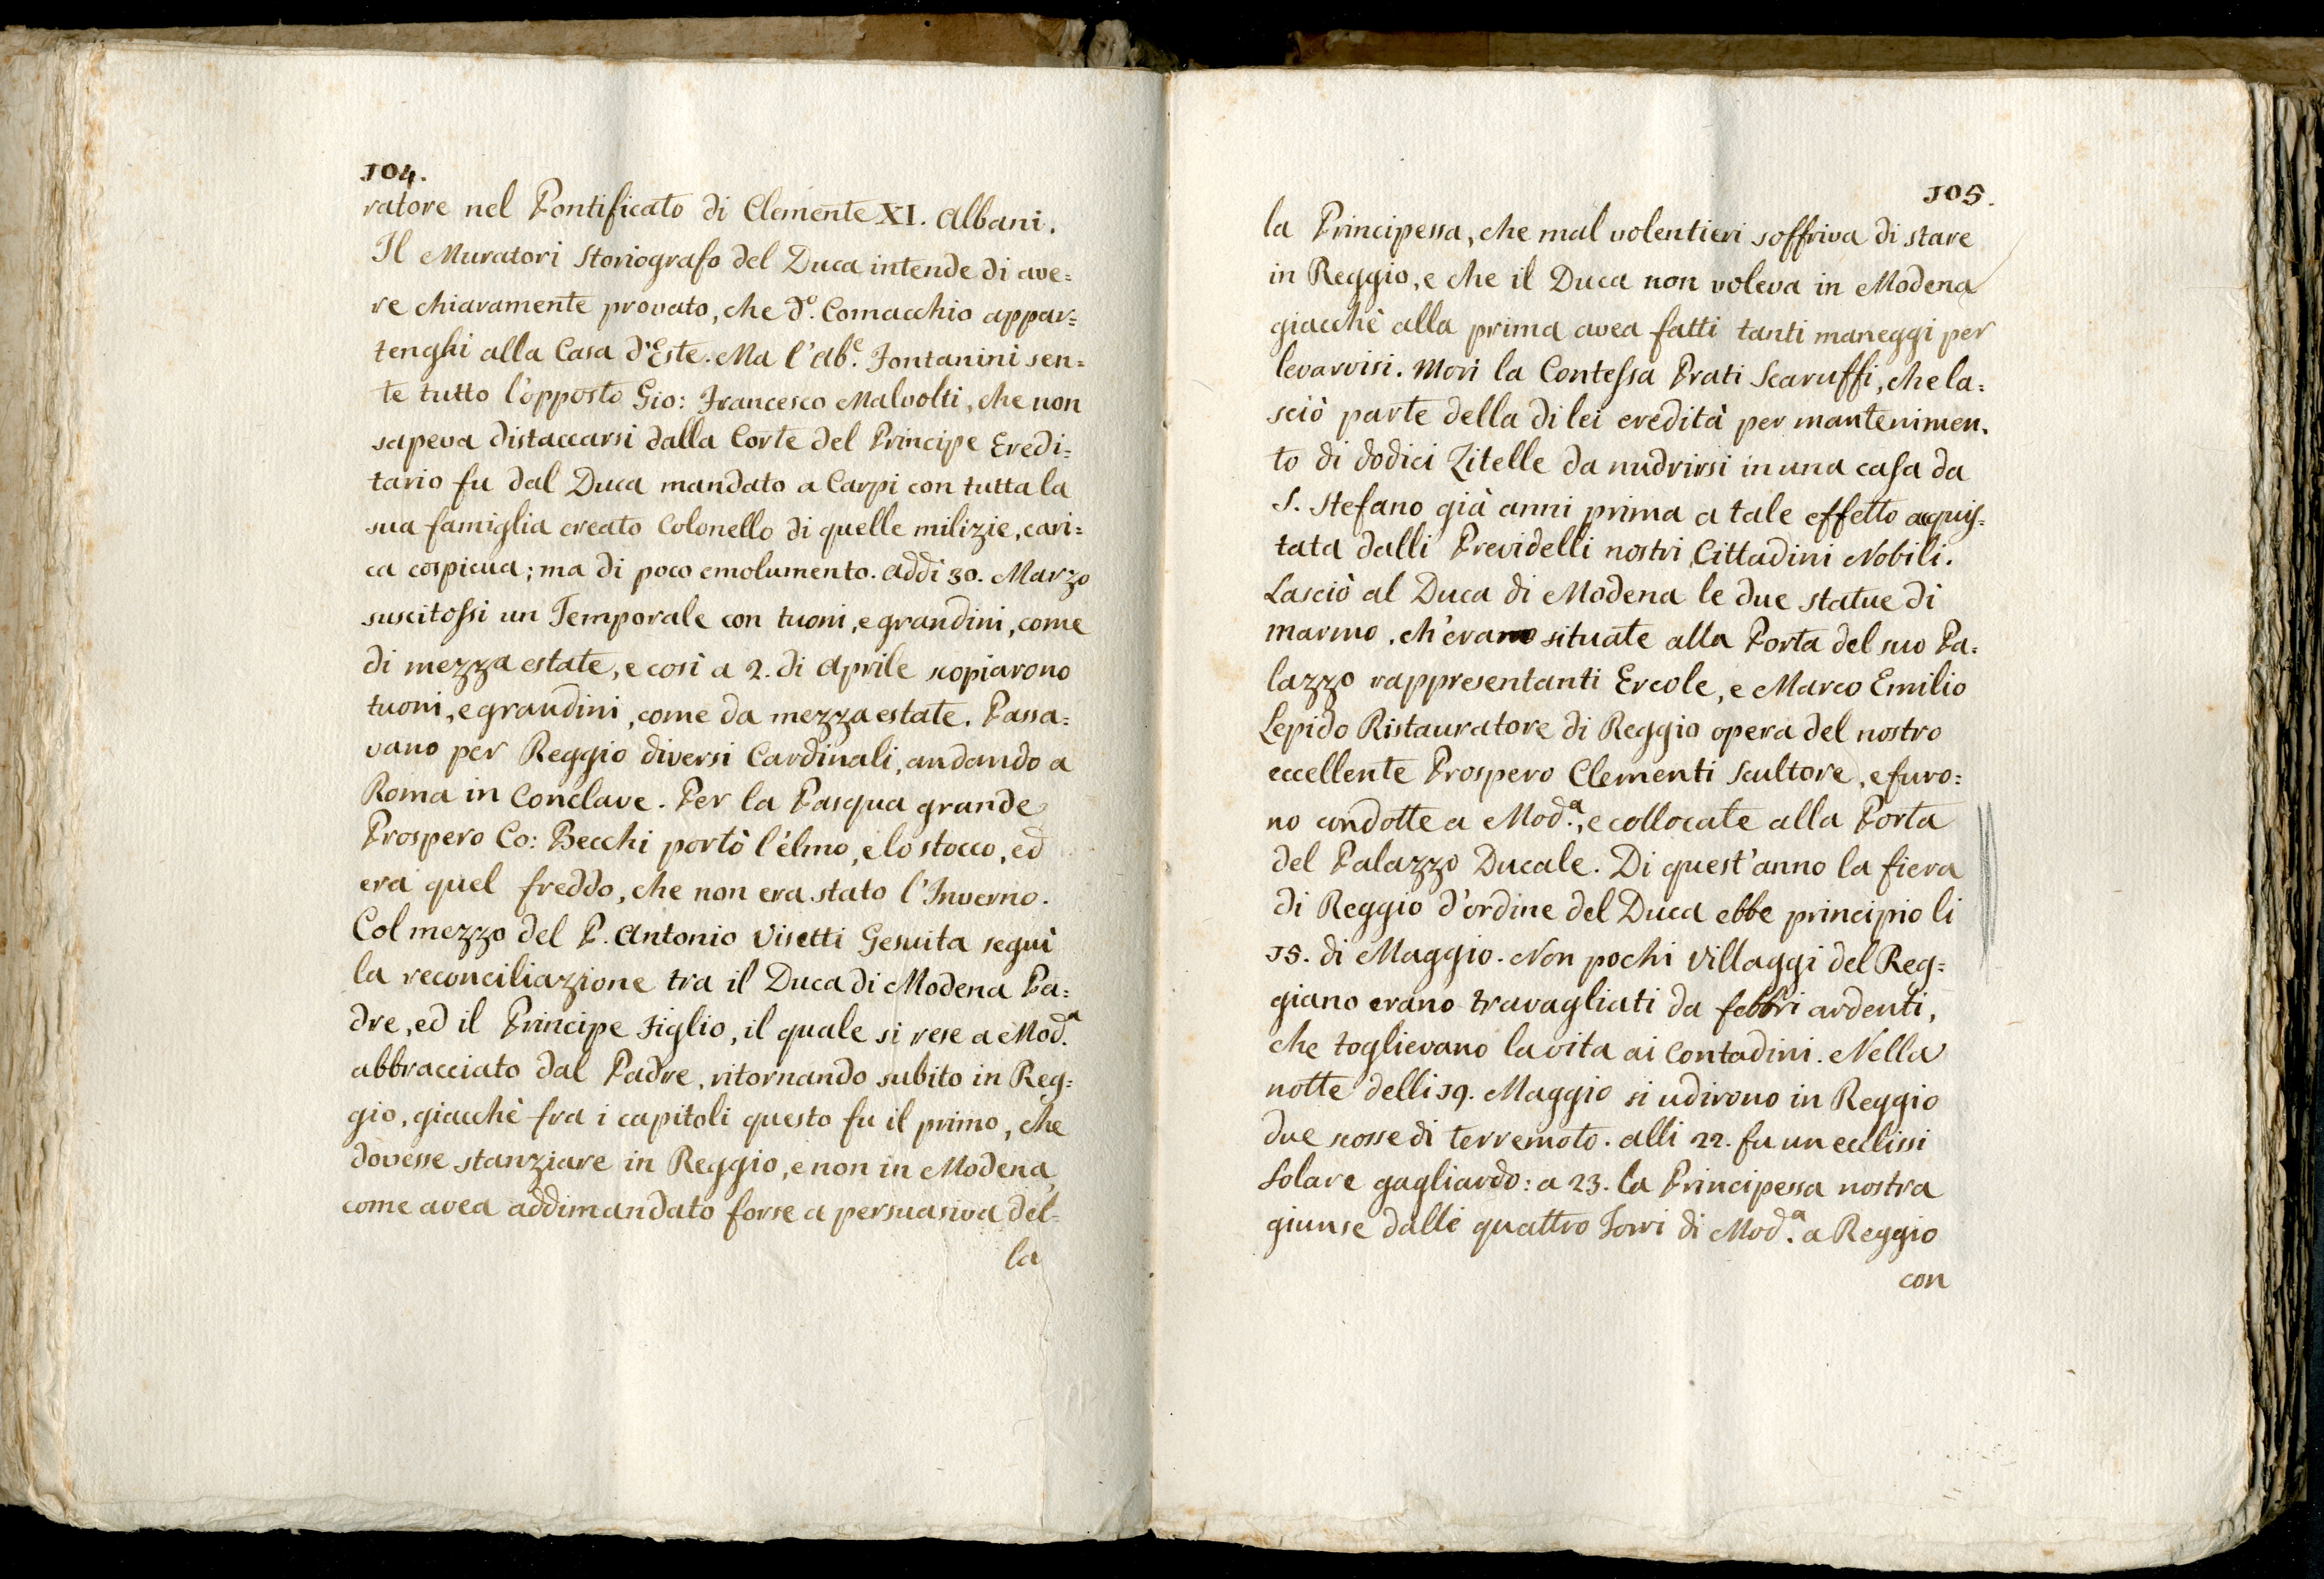 104.
ratore nel Pontificato di Clemente XI. Albani.
Il Muratori Storiografo del Duca intende di ave=
re chiaramente provato, che d.º Comacchio appar=
tenghi alla Casa d'Este. Ma l'Ab.e Fontanini sen=
te tutto l'opposto Gio: Francesco Malvolti, che non
sapeva distaccarsi dalla Corte del Principe Eredi=
tario fu dal Duca mandato a Carpi con tutta la
sua famiglia creato Colonello di quelle milizie, cari=
ca cospicua; ma di poco emolumento. Addi 30. Marzo
suscitossi un Temporale con tuoni, e grandini, come
di mezza estate, e così a 2. di Aprile scopiarono
tuoni, e grandini, come da mezza estate. Passa=
vano per Reggio diversi Cardinali, andando a
Roma in Conclave. Per la Pasqua grande
Prospero Co: Becchi portò l'élmo, e lo stocco, ed
era quel freddo, che non era stato l'Inverno.
Col mezzo del P. Antonio Visetti Gesuita seguì
la reconciliazione tra il Duca di Modena Pa=
dre, ed il Principe Figlio, il quale si rese a Mod.a
abbracciato dal Padre, ritornando subito in Reg=
gio, giacchè fra i capitoli questo fu il primo, che
dovesse stanziare in Reggio, e non in Modena,
come avea addimandato forse a persuasiva del=
la
105.
la Principessa, che mal volentieri soffriva di stare
in Reggio, e che il Duca non voleva in Modena
giacchè alla prima avea fatti tanti maneggi per
levarvisi. Morì la Contessa Prati Scaruffi, che la=
sciò parte della di lei eredità per mantenimen=
to di dodici Zitelle da nudrirsi in una casa da
S. Stefano già anni prima a tale effetto acquis=
tata dalli Previdelli nostri Cittadini Nobili.
Lasciò al Duca di Modena le due statue di
marmo, ch'erano situate alla Porta del suo Pa=
lazzo rappresentanti Ercole, e Marco Emilio
Lepido Ristauratore di Reggio opera del nostro
eccellente Prospero Clementi Scultore, e furo=
no condotte a Mod.a, e collocate alla Porta
del Palazzo Ducale. Di quest'anno la fiera
di Reggio d'ordine del Duca ebbe principio li
15. di Maggio. Non pochi Villaggi del Reg=
giano erano travagliati da febbri ardenti,
che toglievano la vita ai Contadini. Nella
notte delli 19. Maggio si udirono in Reggio
due scosse di terremoto. alli 22. fu un ecclissi
Solare gagliardo: a 23. la Principessa nostra
giunse dalle quattro Torri di Mod.a a Reggio
con